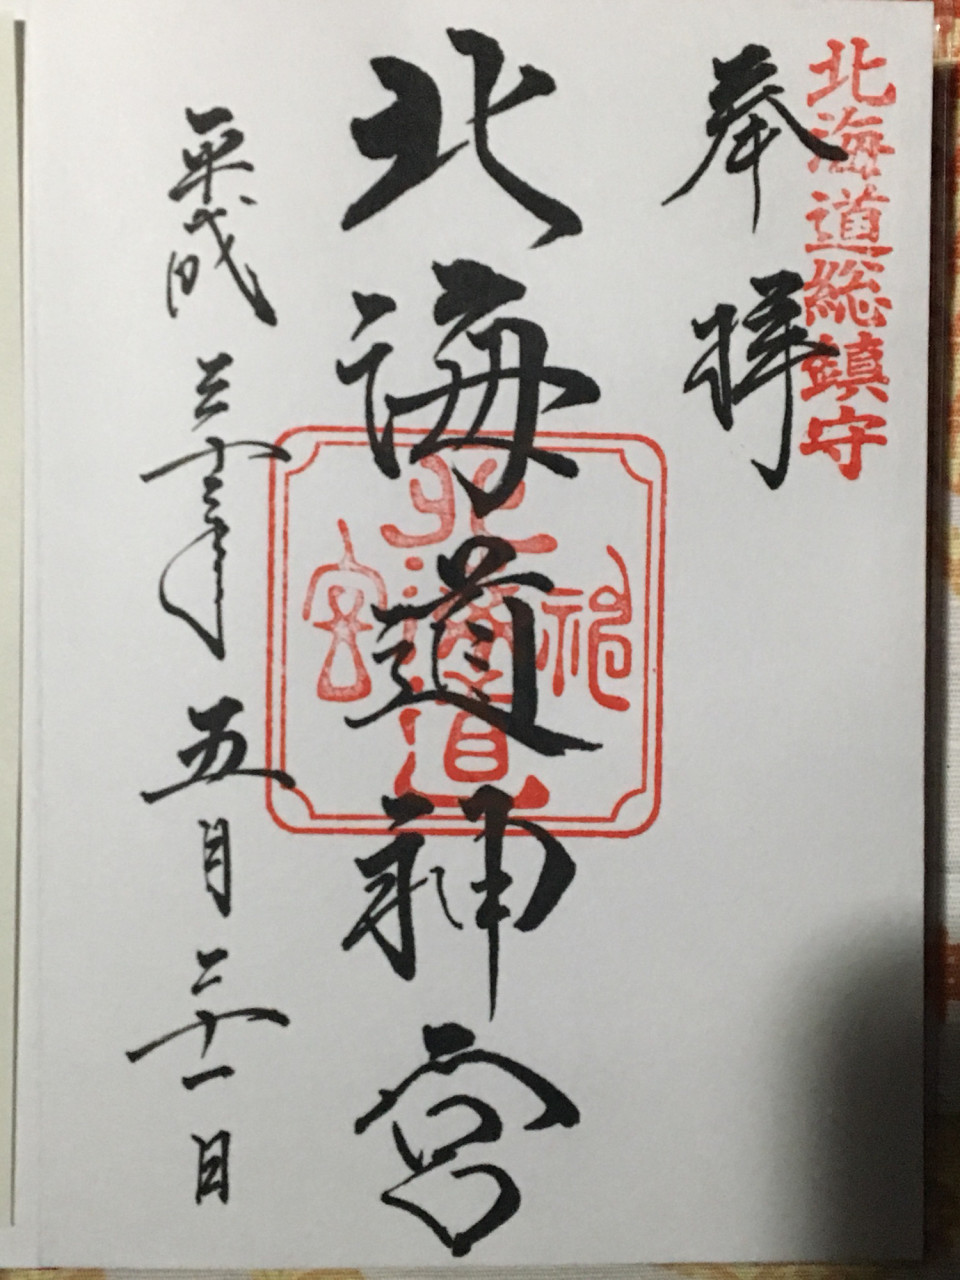 北海道総鎮守
奉拝
北海道神宮
北海道神宮
平成 十 年五月 十一日